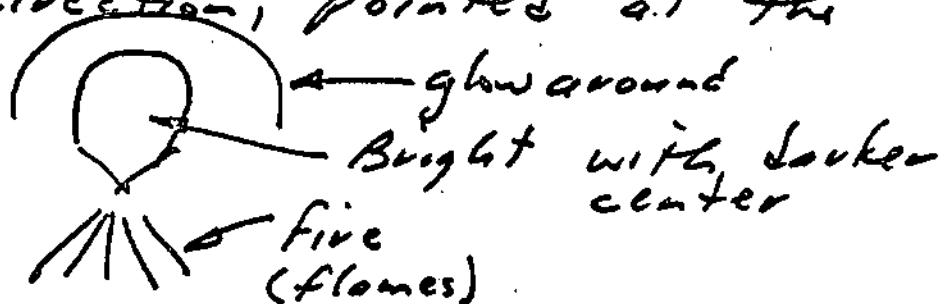 direction, pointed at the
glow around
Bright with darker
center
Fire
(flames)